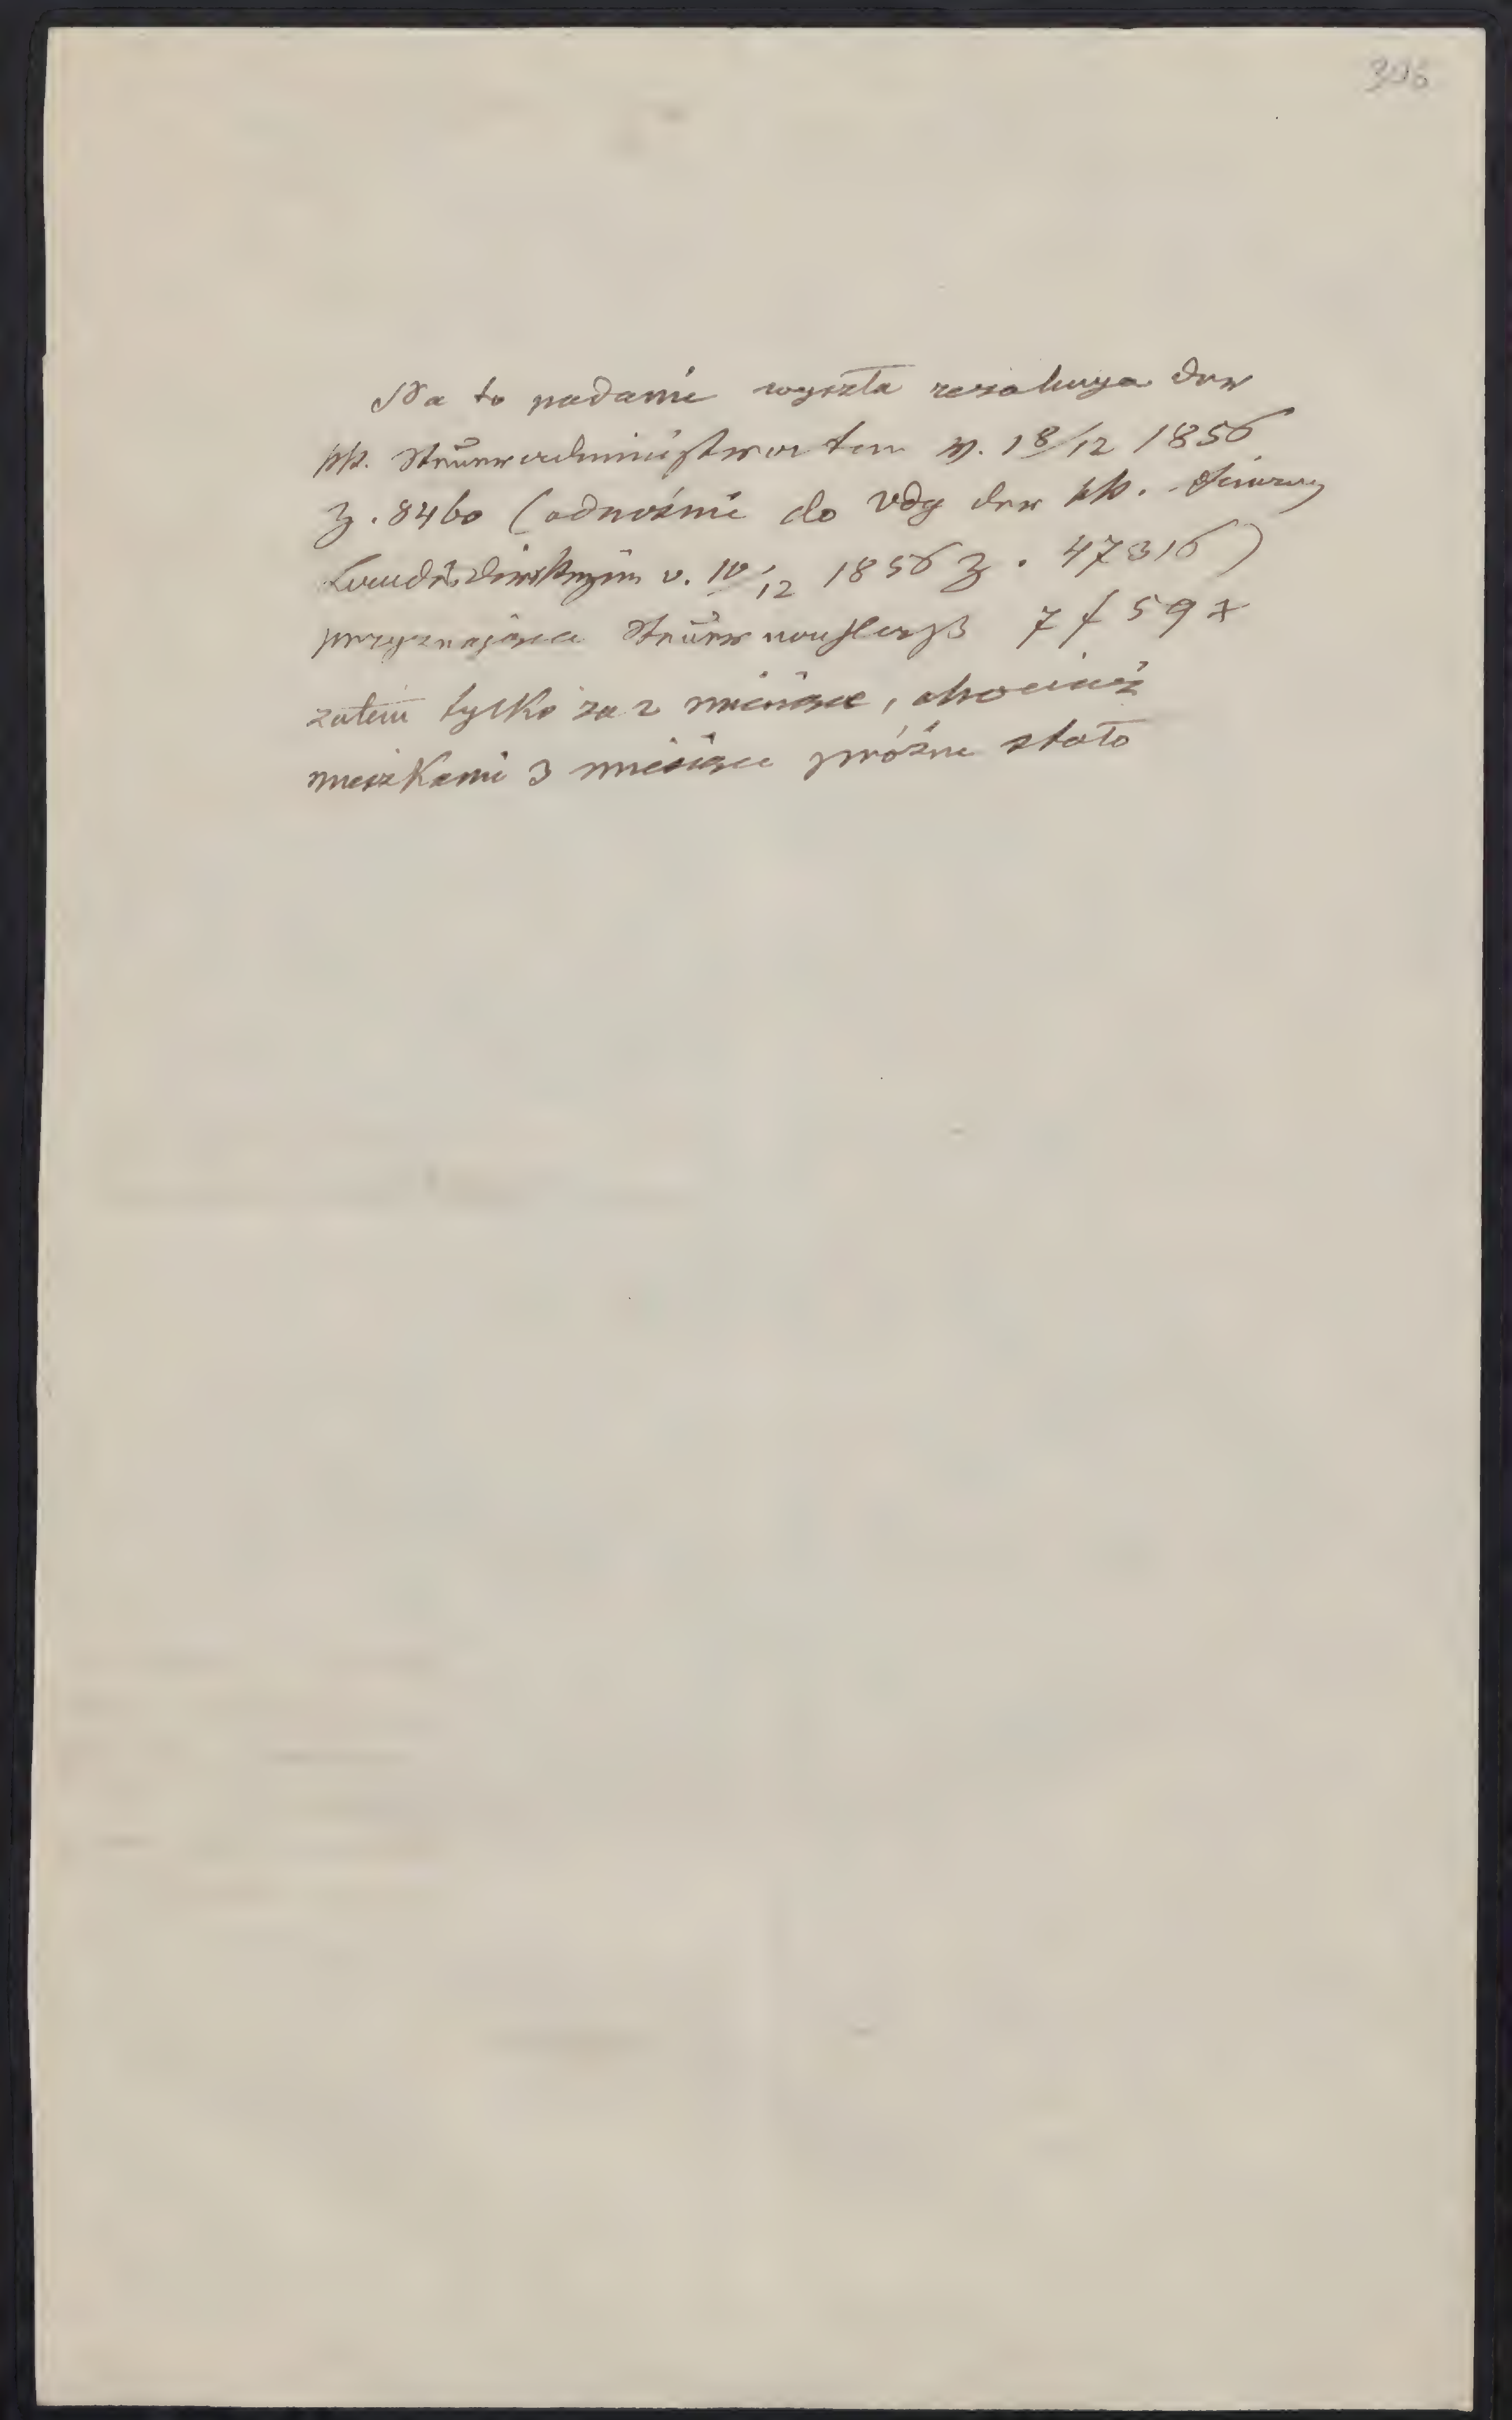 306
Na to podanie wyszła rezolucya der
kk. Steueradministration v. 18/12 1856
Z. 8460 (odnośnie do Vdg der kk. Finanz
Landesdirektion v. 10/12 1856 Z. 47316)
przyznająca Steuernachlaß 7 f 59 x
zatem tylko za 2 miesiące, chociaż
mieszkanie 3 miesiące próżne stało